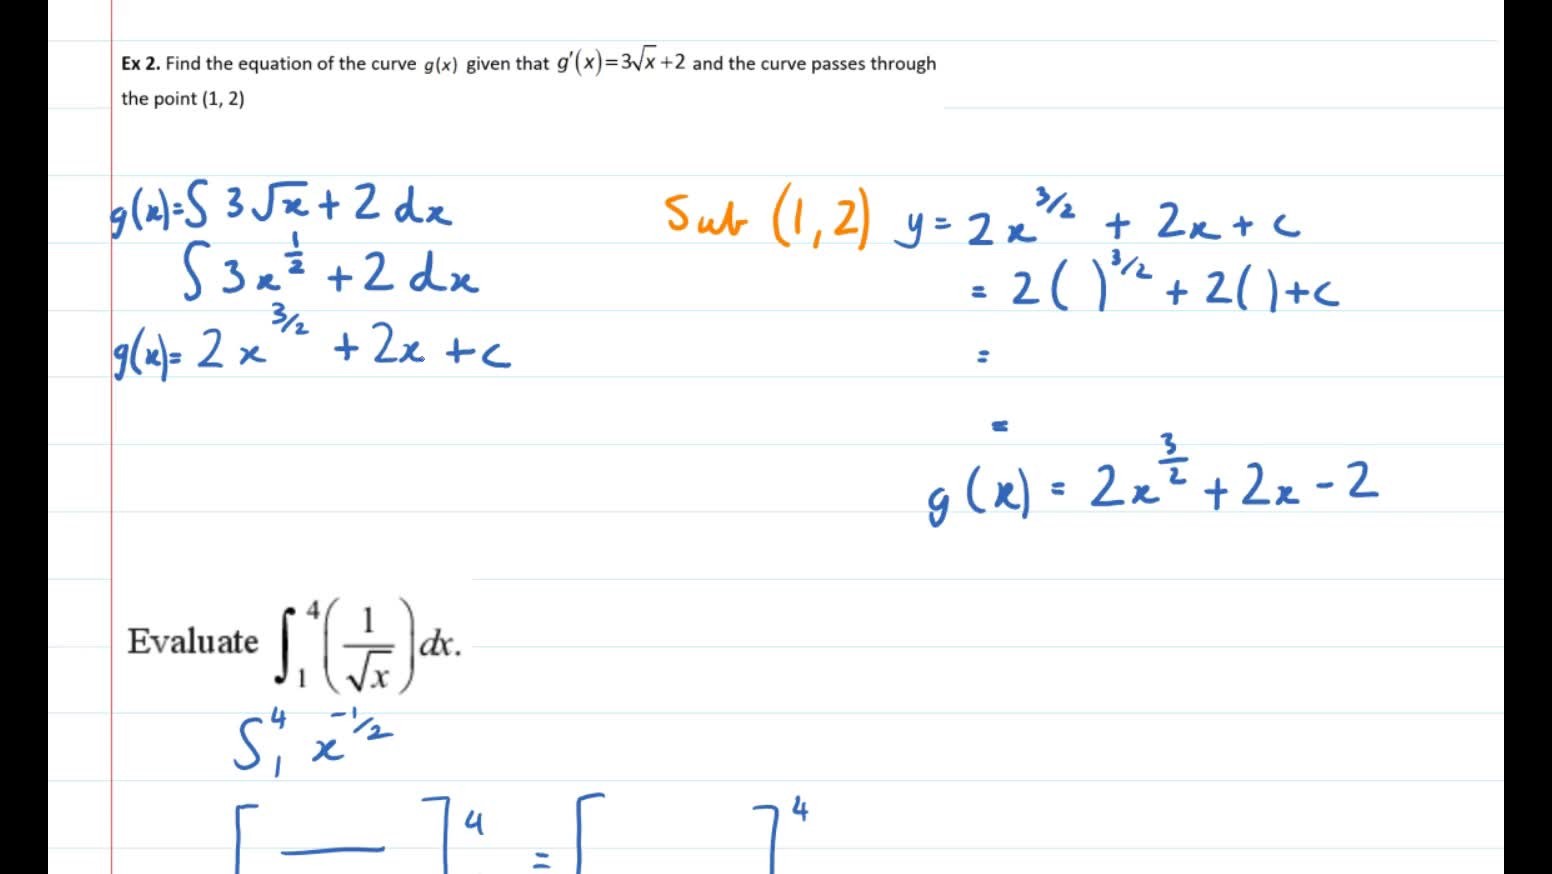 Ex 2. Find the equation of the curve g(x) given that g′(x)=3√x+2 and the curve passes through
the point (1, 2)
g(x)=∫ 3√x + 2 dx
∫ 3x^(1/2) + 2 dx
g(x)= 2x^(3/2) + 2x + c
Sub (1, 2) y = 2x^(3/2) + 2x + c
= 2( )^(3/2) + 2( )+c
=
=
g(x) = 2x^(3/2) + 2x - 2
Evaluate ∫₁⁴ (1/√x) dx.
∫₁⁴ x^(-1/2)
[ — ]⁴ = [ ]⁴